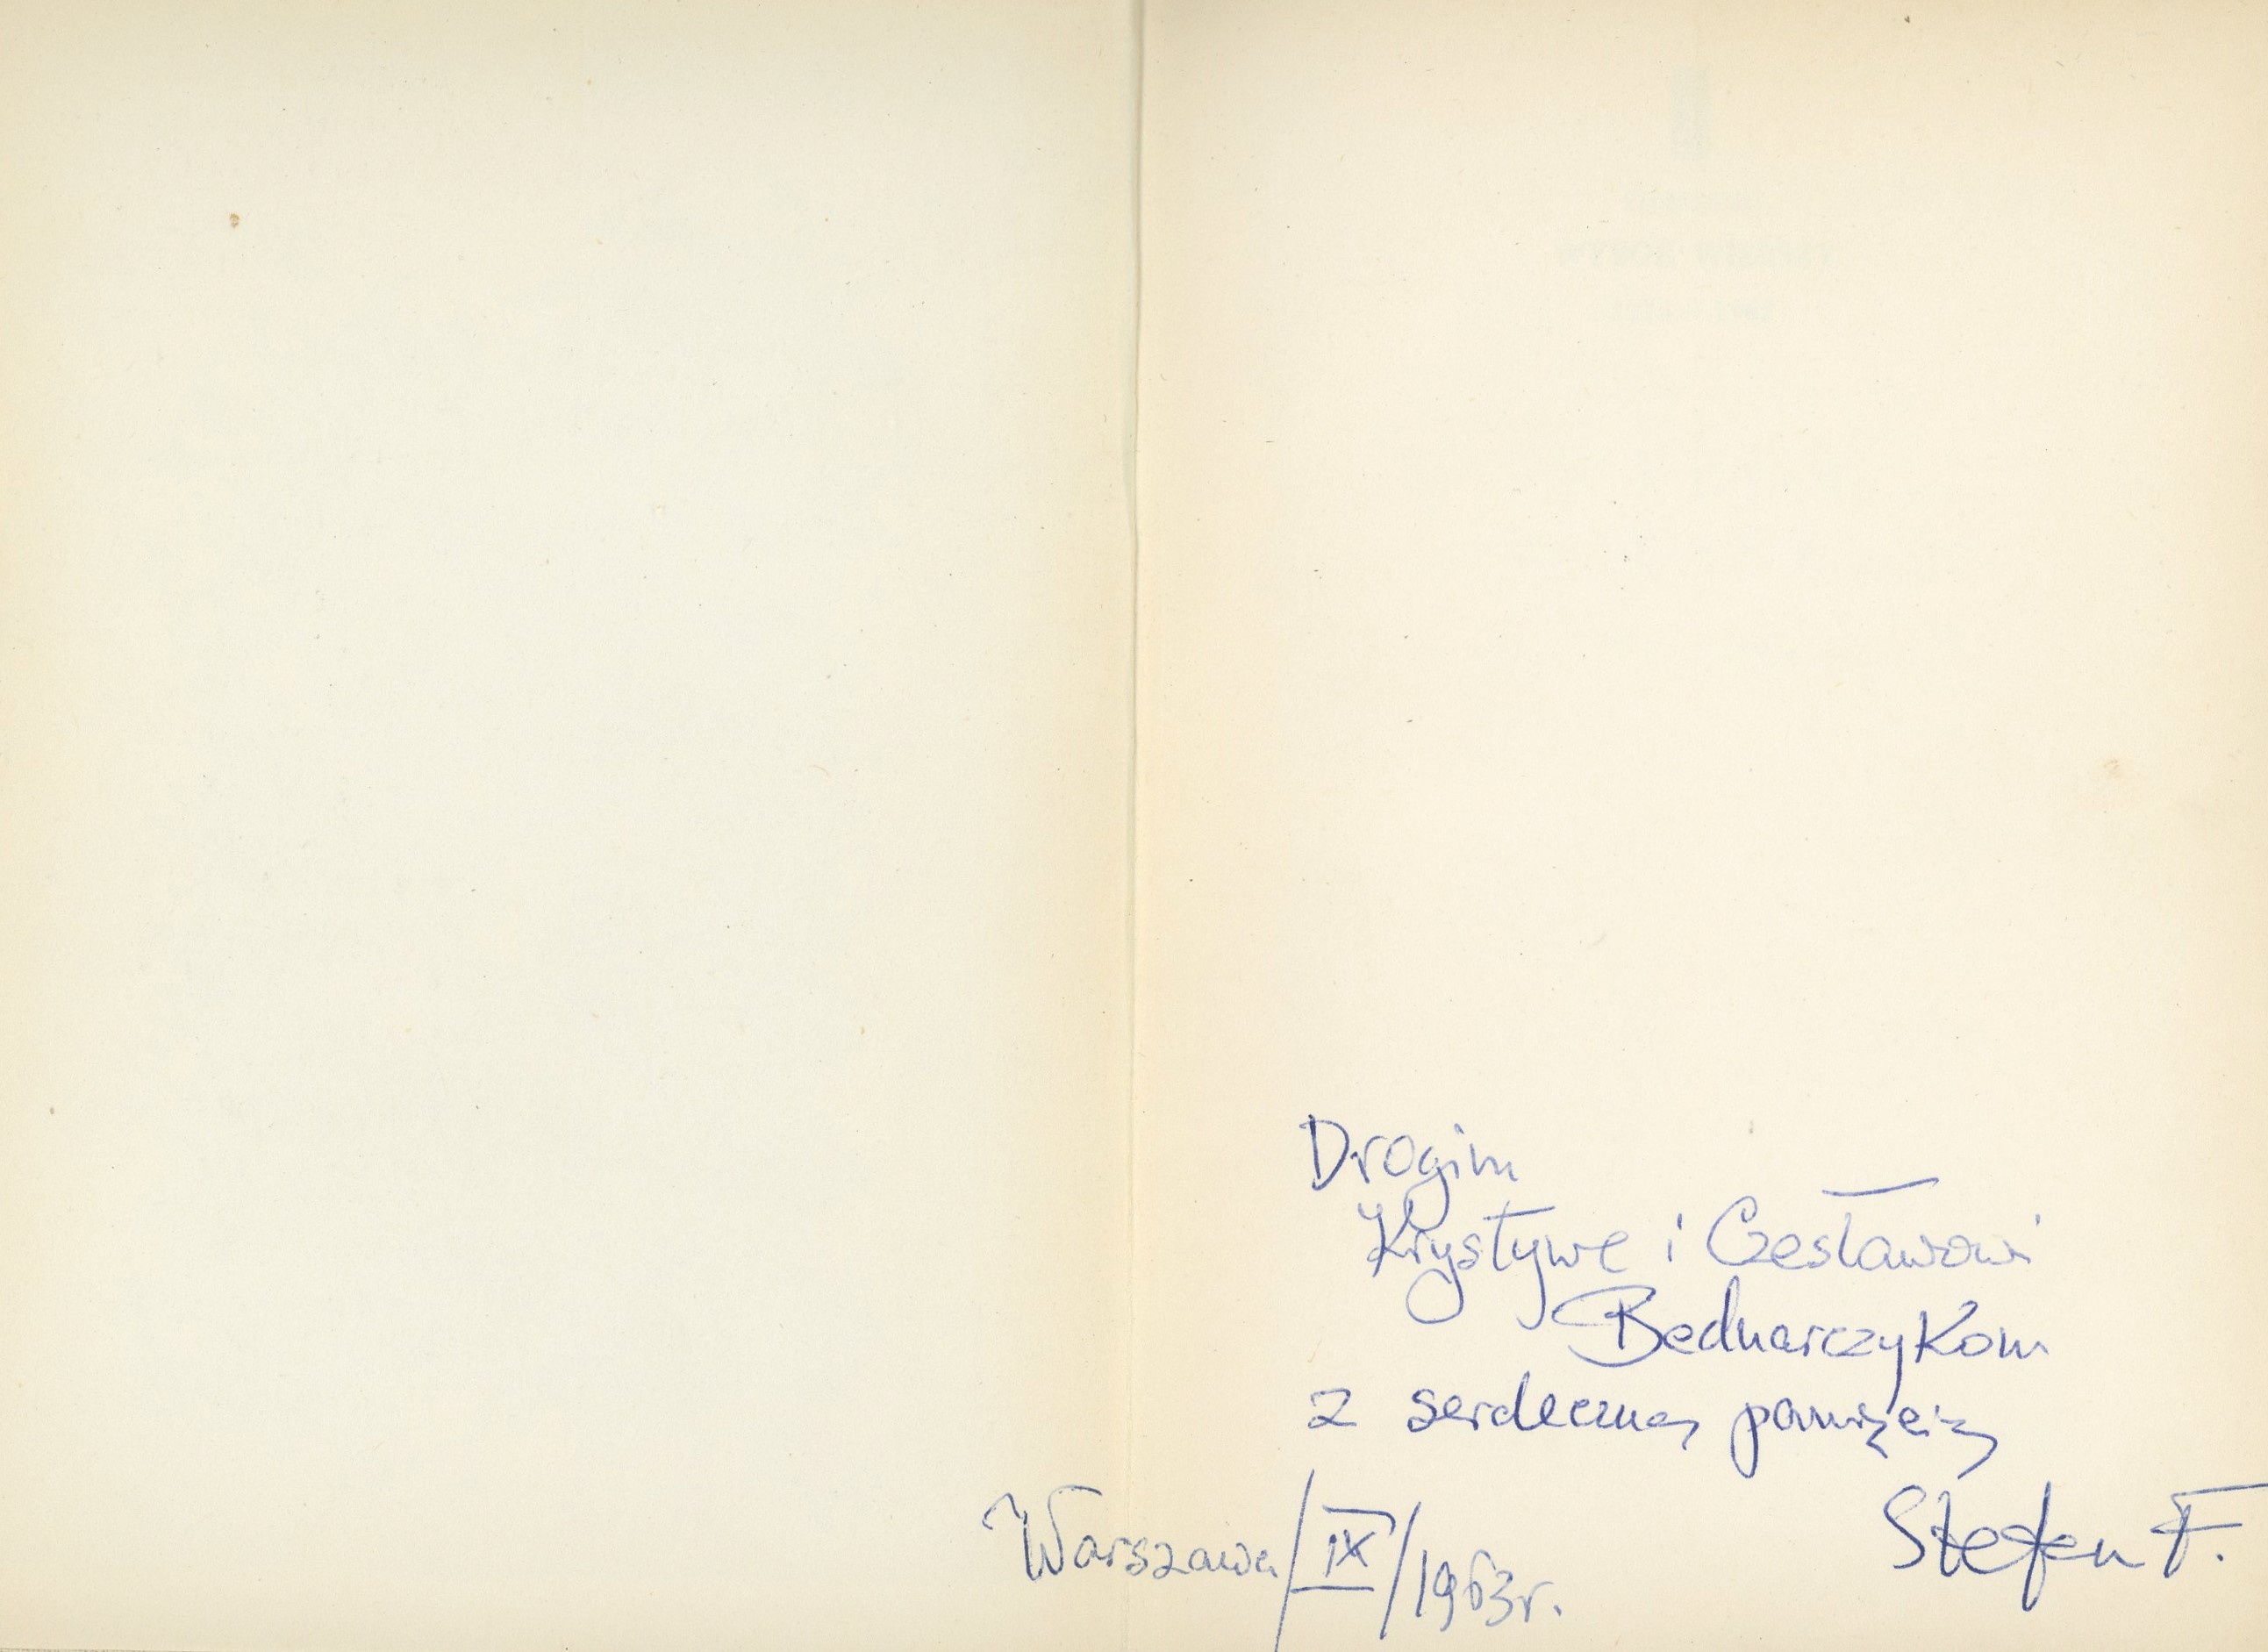 Drogim
Krystynie i Czesławowi
Bednarczykom
z serdeczną pamięcią
Stefan F.
Warszawa/IX/1963r.